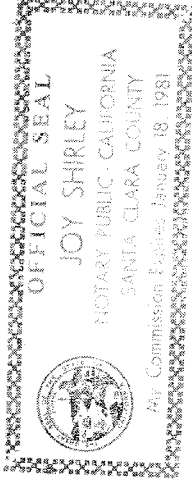 OFFICIAL SEAL
JOY SHIRLEY
NOTARY PUBLIC - CALIFORNIA
SANTA CLARA COUNTY
My Commission Expires January 18, 1981